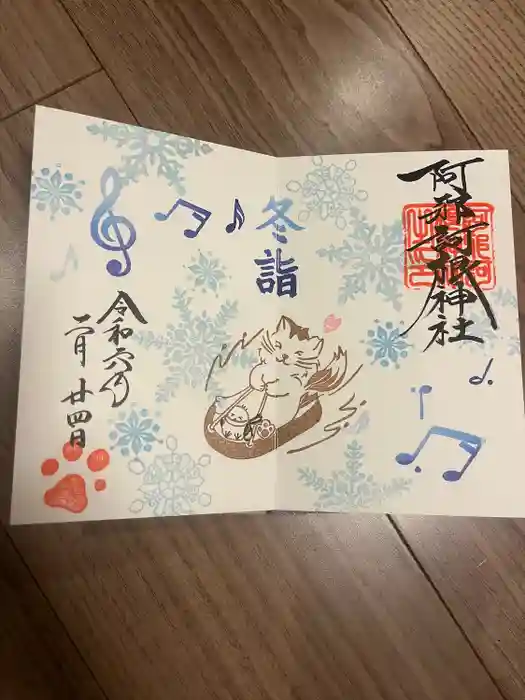 阿邪訶根神社
冬詣
令和六年
一月廿四日